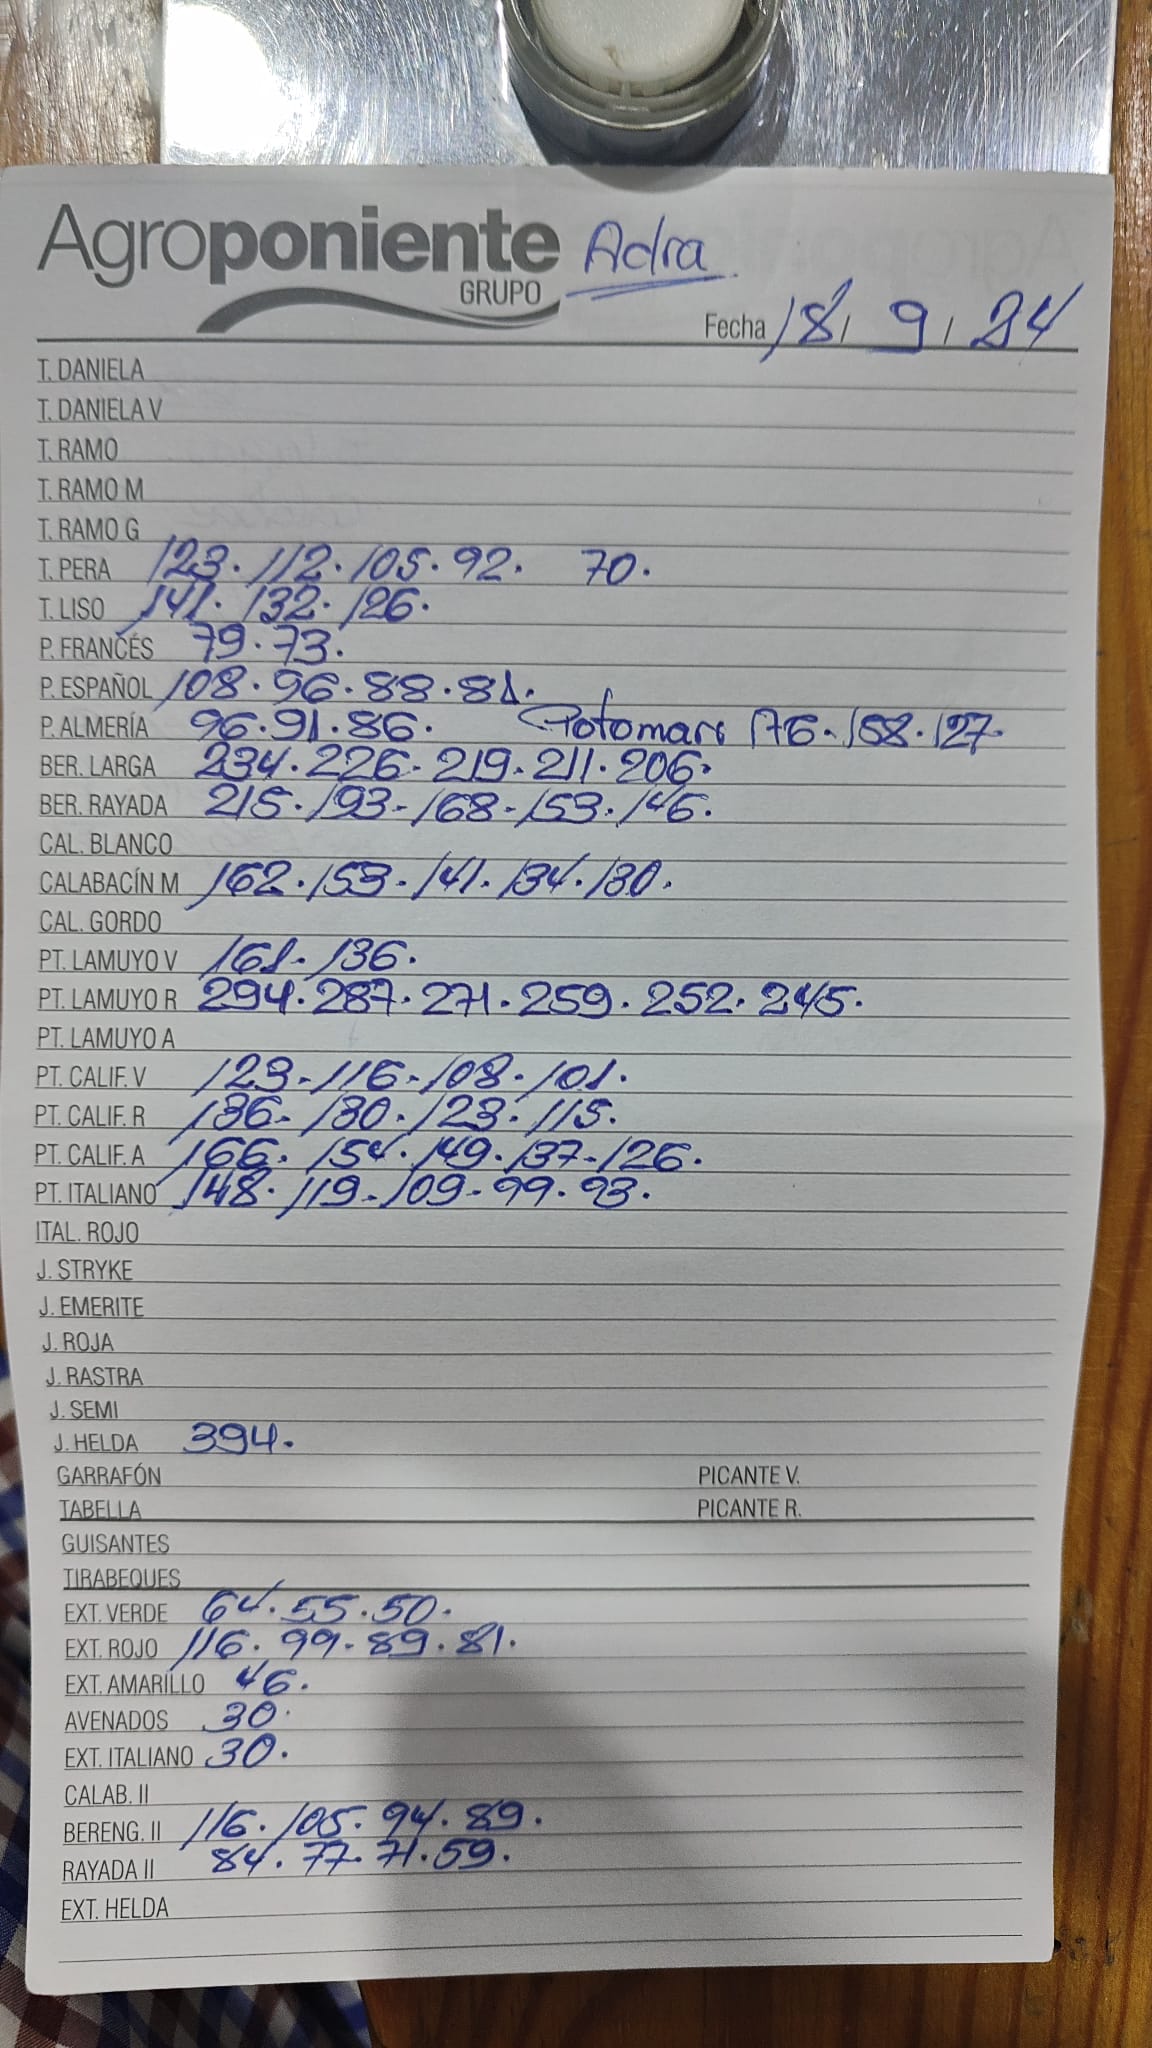 Agroponiente Adra
GRUPO
Fecha 18/ 9/ 24
T. DANIELA
T. DANIELA V
T. RAMO
T. RAMO M
T. RAMO G
T. PERA 123. 112. 105. 92. 70.
T. LISO 141. 132. 126.
P. FRANCÉS 79. 73.
P. ESPAÑOL 108. 96. 88. 81.
P. ALMERÍA 96. 91. 86. Potomars 176. 127.
BER. LARGA 234. 226. 219. 211. 206.
BER. RAYADA 215. 193- 168- 153. 146.
CAL. BLANCO
CALABACÍN M 162. 153- 141. 134. 130.
CAL. GORDO
PT. LAMUYO V 161. 136.
PT. LAMUYO R 294. 287. 271. 259. 252. 245.
PT. LAMUYO A
PT. CALIF. V 123- 116- 108. 101.
PT. CALIF. R 136- 130. 123. 115.
PT. CALIF. A 166. 154. 149. 137- 126.
PT. ITALIANO 148. 119- 109- 99. 93.
ITAL. ROJO
J. STRYKE
J. EMERITE
J. ROJA
J. RASTRA
J. SEMI
J. HELDA 394.
GARRAFÓN PICANTE V.
TABELLA PICANTE R.
GUISANTES
TIRABEQUES
EXT. VERDE 64. 55. 50.
EXT. ROJO 116. 99- 89. 81.
EXT. AMARILLO 46.
AVENADOS 30.
EXT. ITALIANO 30.
CALAB. II
BERENG. II 116. 105. 94. 89.
RAYADA II 84. 77. 71. 59.
EXT. HELDA